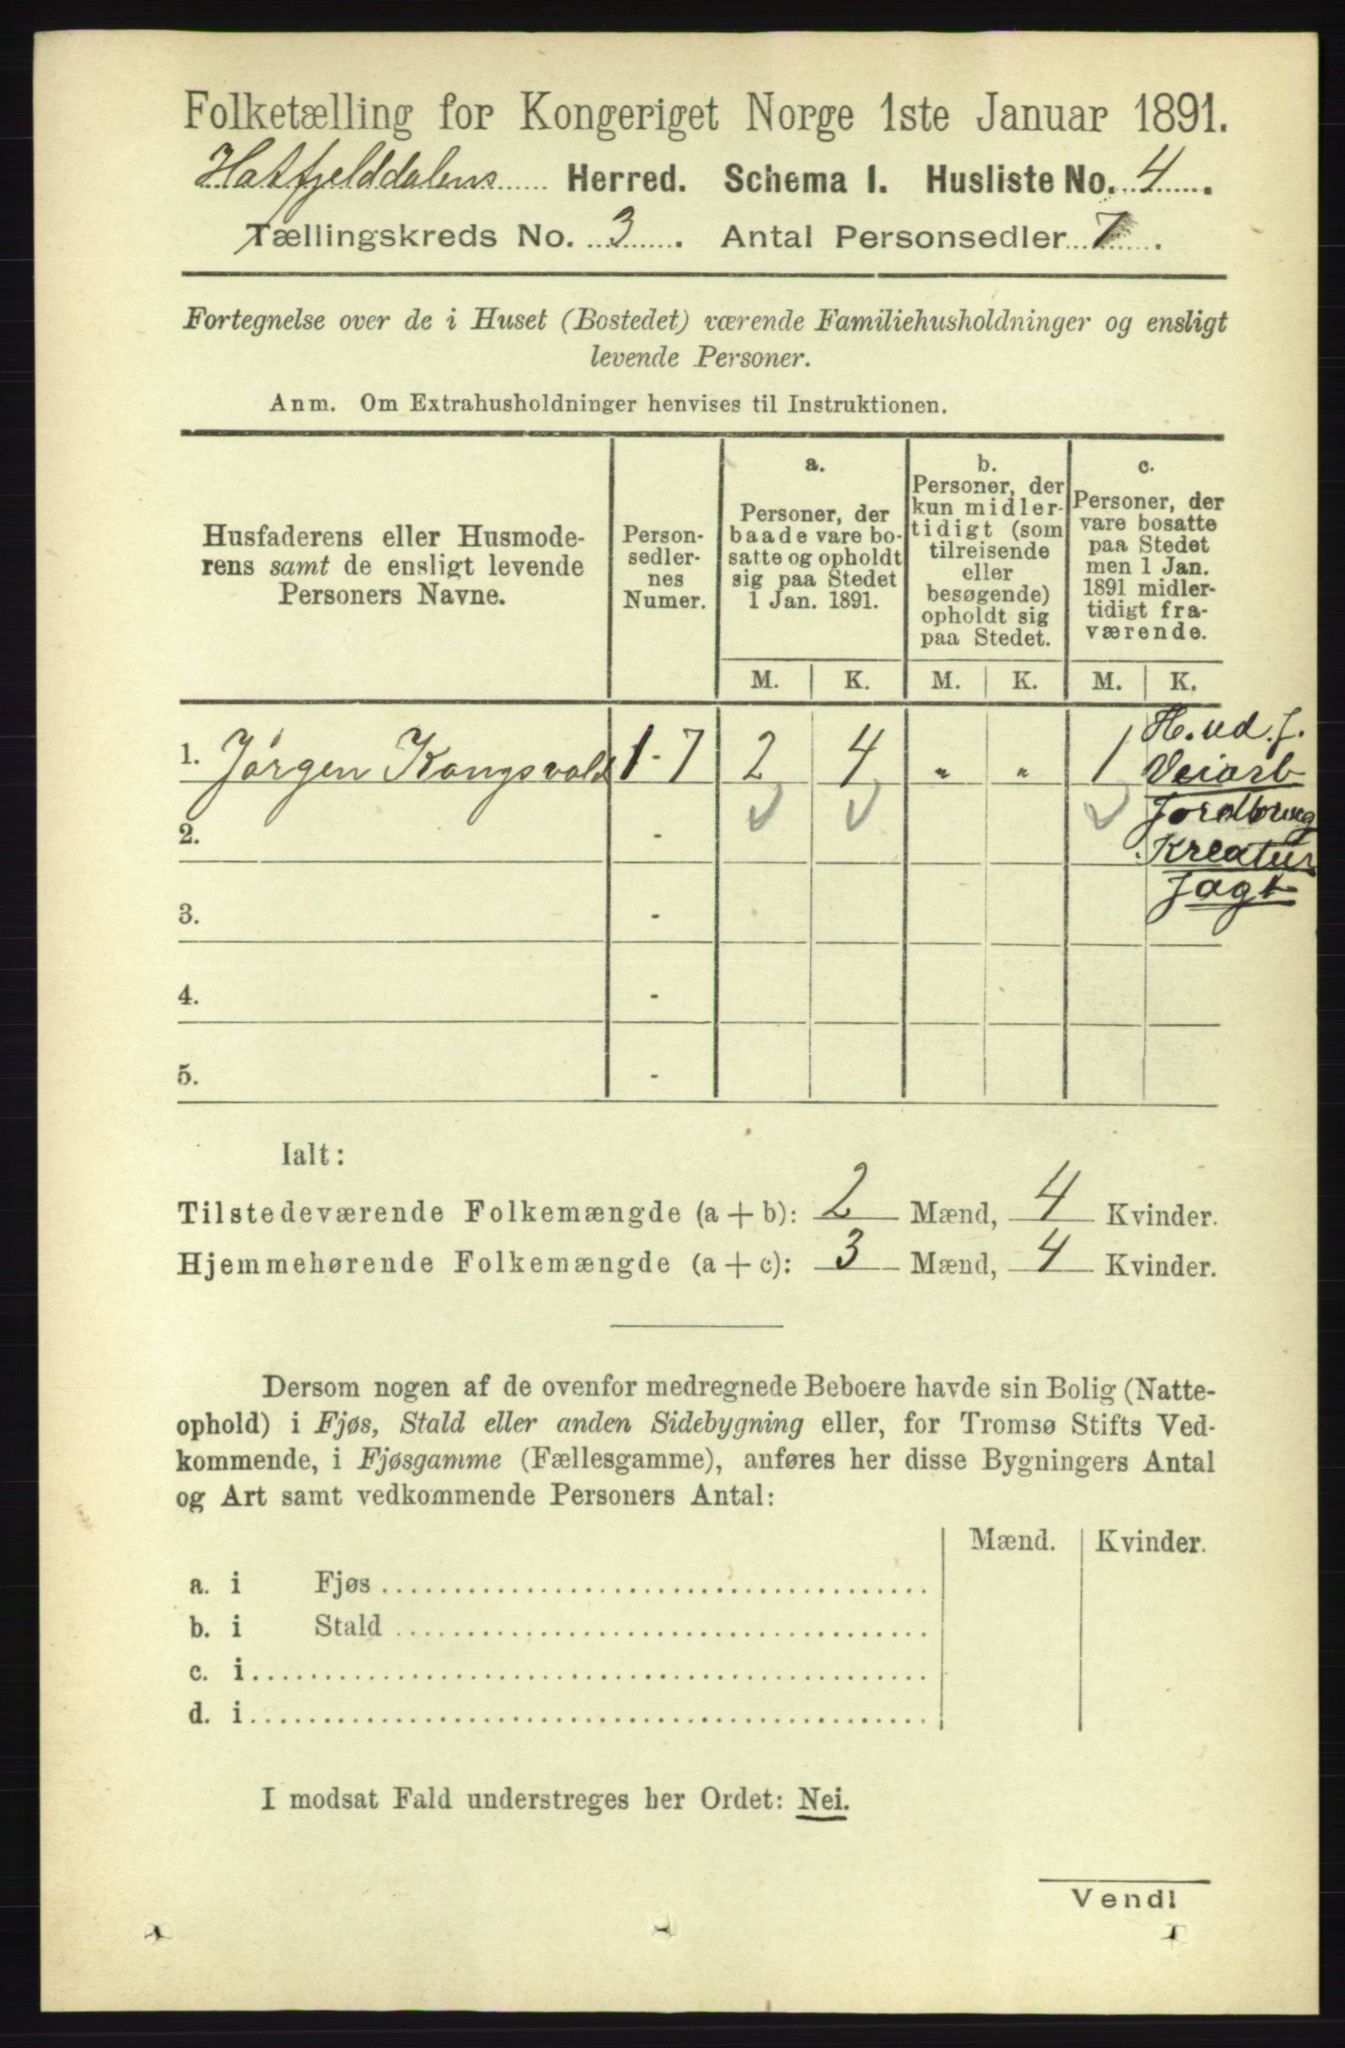 Folketælling for Kongeriget Norge 1ste Januar 1891.
Hatfjelddalens Herred. Schema I. Husliste No. 4.
Tællingskreds No. 3. Antal Personsedler 7.
Fortegnelse over de i Huset (Bostedet) værende Familiehusholdninger og ensligt
levende Personer.
Anm. Om Extrahusholdninger henvises til Instruktionen.
Husfaderens eller Husmode-
rens samt de ensligt levende
Personers Navne.
Person-
sedler-
nes
Numer.
a.
Personer, der
baade vare bo-
satte og opholdt
sig paa Stedet
1 Jan. 1891.
b.
Personer, der
kun midler-
tidigt (som
tilreisende
eller
besøgende)
opholdt sig
paa Stedet.
c.
Personer, der
vare bosatte
paa Stedet
men 1 Jan.
1891 midler-
tidigt fra-
værende.
M. K. M. K. M. K.
1. Jørgen Kongsvold 1 - 7 2 4 " " 1
H. ud. f.
Veiarb
Jordbrug
Kreatur
Jagt
2. -
3. -
4. -
5. -
Ialt:
Tilstedeværende Folkemængde (a + b): 2 Mænd, 4 Kvinder.
Hjemmehørende Folkemængde (a + c): 3 Mænd, 4 Kvinder.
Dersom nogen af de ovenfor medregnede Beboere havde sin Bolig (Natte-
ophold) i Fjøs, Stald eller anden Sidebygning eller, for Tromsø Stifts Ved-
kommende, i Fjøsgamme (Fællesgamme), anføres her disse Bygningers Antal
og Art samt vedkommende Personers Antal:
Mænd. Kvinder.
a. i Fjøs
b. i Stald
c. i
d. i
I modsat Fald understreges her Ordet: Nei.
Vend!